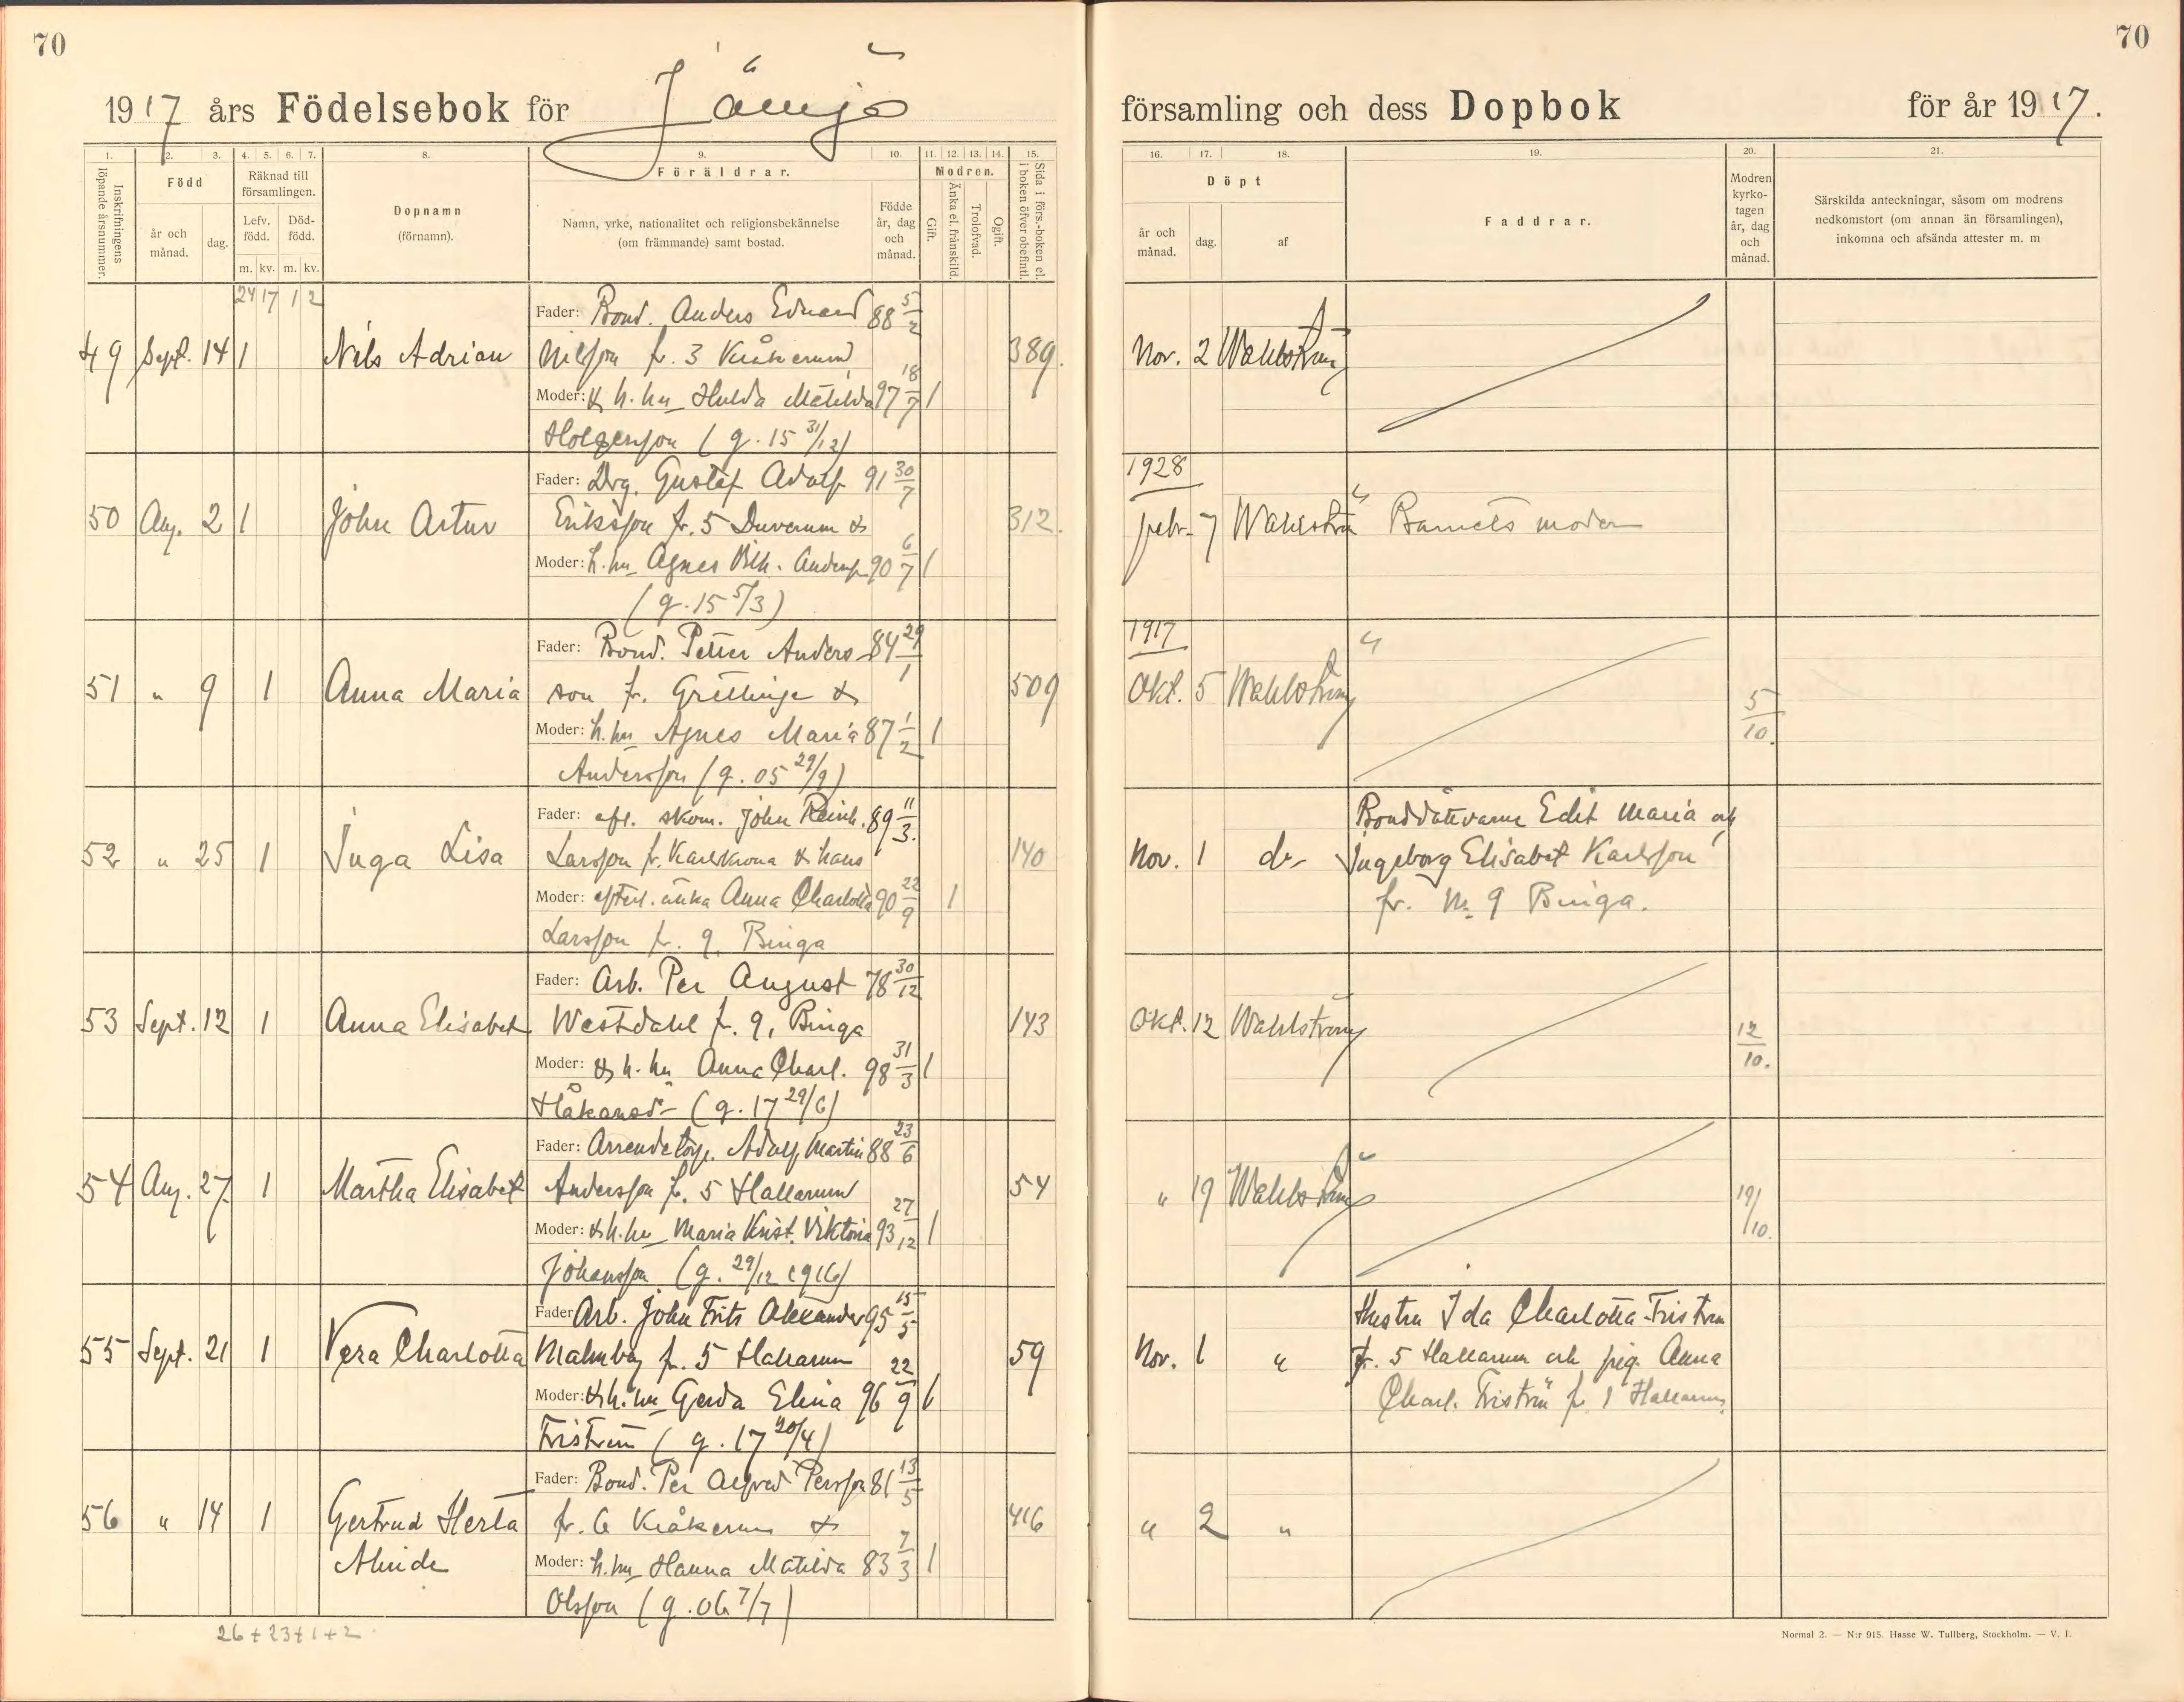 70
70
1917 års Födelsebok för Jämjö
församling och dess Dopbok för år 1917.
1. 2. 3. 4. 5. 6. 7. 8. 9. 10. 11. 12. 13. 14. 15.
16. 17. 18. 19. 20. 21.
Inskrifningens löpande årsnummer.
Född
år och månad.
dag.
Räknad till församlingen.
Lefv. född.
Död-född.
m. kv. m. kv.
Dopnamn
(förnamn).
Föräldrar.
Namn, yrke, nationalitet och religionsbekännelse
(om främmande) samt bostad.
Födde år, dag och månad.
Modren.
Gift.
Änka el. frånskild.
Trolofvad.
Ogift.
Sida i förs.-boken el. i boken öfver obefintl.
Döpt
år och månad.
dag.
af
Faddrar.
Modren kyrko-tagen år, dag och månad.
Särskilda anteckningar, såsom om modrens
nedkomstort (om annan än församlingen),
inkomna och afsända attester m. m
24 17 1 2
Fader: Bond. Anders Edvard 88 5/2
49 Sept. 14 1 Nils Adrian Nilsson fr. 3 Kråkerum 389. Nov. 2 Wahlström
Moder: & h. hu Hulda Matilda 97 18/7 1
Holgersson (g. 15 31/12)
Fader: Drg. Gustaf Adolf 91 30/7
1928
50 Aug. 2 1 John Artur Eriksson fr. 5 Duverum & 312. febr. 7 Wahlström Barnets moder
Moder: h. hu Agnes Vilh. Anderss. 90 6/7 1
(g. 15 5/3)
Fader: Bond. Petter Anders- 84 29/1
1917
51 " 9 1 Anna Maria son fr. Grettinge & 509 Okt. 5 Wahlström 5/10.
Moder: h. hu Agnes Maria 87 1/2 1
Andersson (g. 05 29/9)
Fader: afl. skom. John Reinh. 89 11/3.
Bonddöttrarne Edit Maria och
52 " 25 1 Inga Lisa Larsson fr. Karlskrona & hans 140 Nov. 1 d:o Ingeborg Elisabet Karlsson
Moder: efterl. änka Anna Charlotta 90 22/9 1
fr. N:o 9 Binga.
Larsson fr. 9, Binga
Fader: Arb. Per August 78 30/12
53 Sept. 12 1 Anna Elisabet Westdahl fr. 9, Binga 143 Okt. 12 Wahlström 12/10.
Moder: & h. hu Anna Charl. 98 31/3 1
Håkansd:r (g. 17 29/6)
Fader: Arrendetorp. Adolf Martin 88 23/6
54 Aug. 27 1 Martha Elisabet Andersson fr. 5 Hallarum 54 " 19 Wahlström 19/10.
Moder: & h. hu Maria Krist. Viktoria 93 27/12 1
Johansson (g. 29/12 1916)
Fader: Arb. John Frits Alexander 95 15/5
Hustru Ida Charlotta Friström
55 Sept. 21 1 Vera Charlotta Malmberg fr. 5 Hallarum 59 Nov. 1 " fr. 5 Hallarum och pig. Anna
Moder: & h. hu Gerda Elina 96 22/9 1
Charl. Friström fr. 1 Hallarum.
Friström (g. 17 20/4)
Fader: Bond. Per Alfred Persson 81 13/5
56 " 14 1 Gertrud Herta fr. 6 Kråkerum & 416 " 2 "
Alinde
Moder: h. hu Hanna Matilda 83 7/3 1
Olsson (g. 06 7/7)
26 + 23 + 1 + 2
Normal 2. — N:r 915. Hasse W. Tullberg, Stockholm. — V. I.